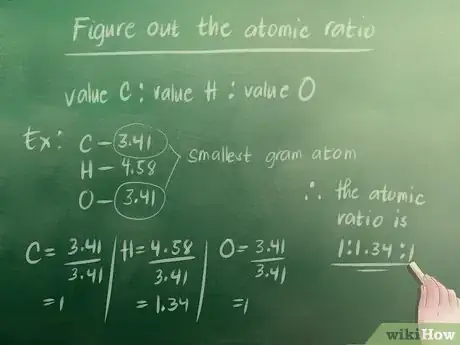 Figure out the atomic ratio
value C : value H : value O
Ex: C – 3.41
H – 4.58
O – 3.41
smallest gram atom
∴ the atomic
ratio is
1:1.34:1
C = 3.41/3.41
= 1
H = 4.58/3.41
= 1.34
O = 3.41/3.41
= 1
wikiHow